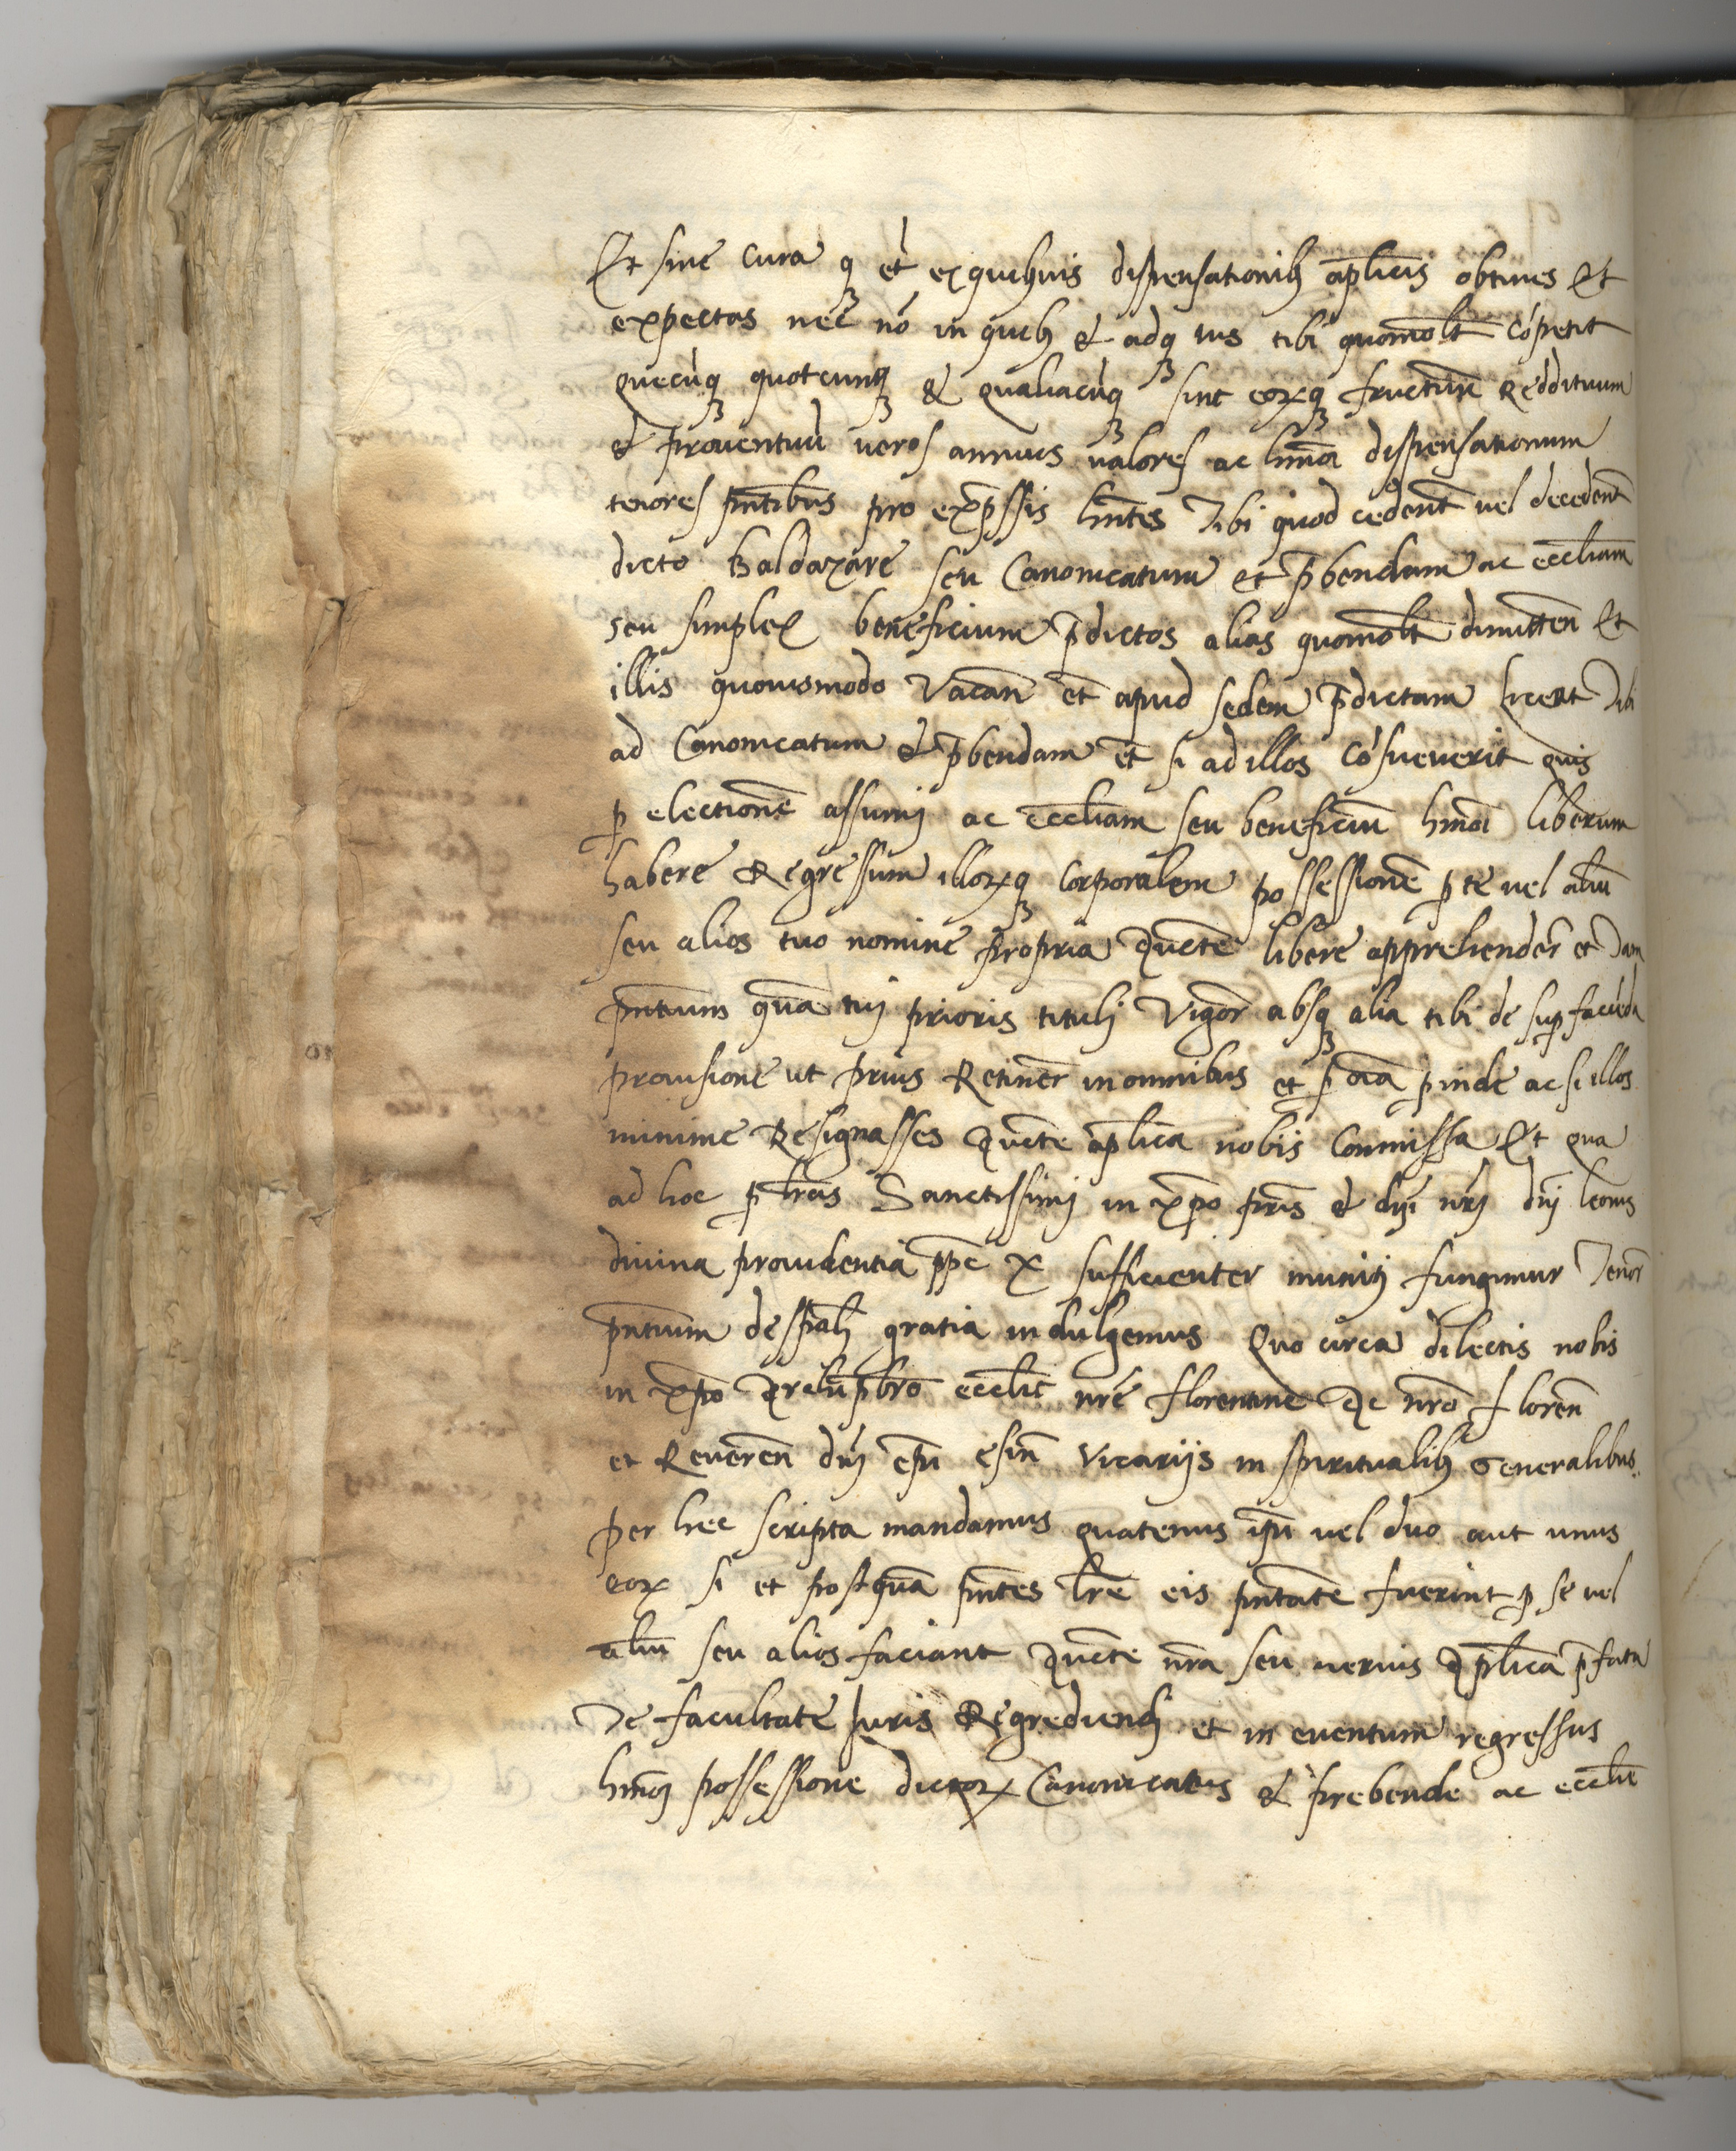 Et sine cura q et ex quibusvis dispensationibꝫ aplicis obtines et
expectas nec nõ in quibꝫ & adqꝫ ius tibi quomolt cõpetit
quecũqꝫ quotcunqꝫ & qualiacũqꝫ sint eoꝝqꝫ fructuũ Reddituum
& prouentuũ ueros annuos ualores ac hmõi dispensationum
tenores pntibus pro exp̃ssis hñtes Tibi quod cedent uel decedent
dicto Baldazare seu Canonicatum et p̃bendam ac eccliam
seu simplex beneficium p̃dictos alias quomolt dimitten et
illis quouismodo Vacañ et apud sedem p̃dictam liceat Tibi
ad Canonicatum & p̃bendam et si ad illos cõsueuerit quis
ꝑ electionẽ assumi ac eccliam seu beneficiũ hmõi liberum
habere Regressum illoꝝqꝫ corporalem possessionẽ ꝑ te uel aliũ
seu alios tuo nomine propria auctẽ libere apprehender et Tam
pntium quã tui prioris tituli Vigor absqꝫ alia tibi de suꝑ faciẽda
prouisione ut prius Retiner in omnibus et ꝑ oĩa ꝑinde ac si illos
minime Resignasses auctẽ aplica nobis Commissa et qua
ad hoc ꝑ lras Sanctissimi in xp̃o pris & dñi nri dñi leonis
diuina prouidentia pp̃e X sufficienter muniti fungimur Tenor
pntium de sp̃ali gratia indulgemus Quo circa dilectis nobis
in xp̃o Archip̃bro ecclie nre florentine Ac nro floreñ
et Reuereñ dñi ep̃i esiñ Vicariis in spiritualibꝫ Generalibus
per hec scripta mandamus quatenus ip̃i uel duo aut unus
eoꝝ si et postquã pntes lre eis pntate fuerint ꝑ se uel
aliũ seu alios faciant auctẽ nra seu uerius Aplica p̃fata
Te facultate Juris Regrediendi et in euentum regressus
hmõi possessione dictoꝝ Canonicatus & prebende ac ecclie